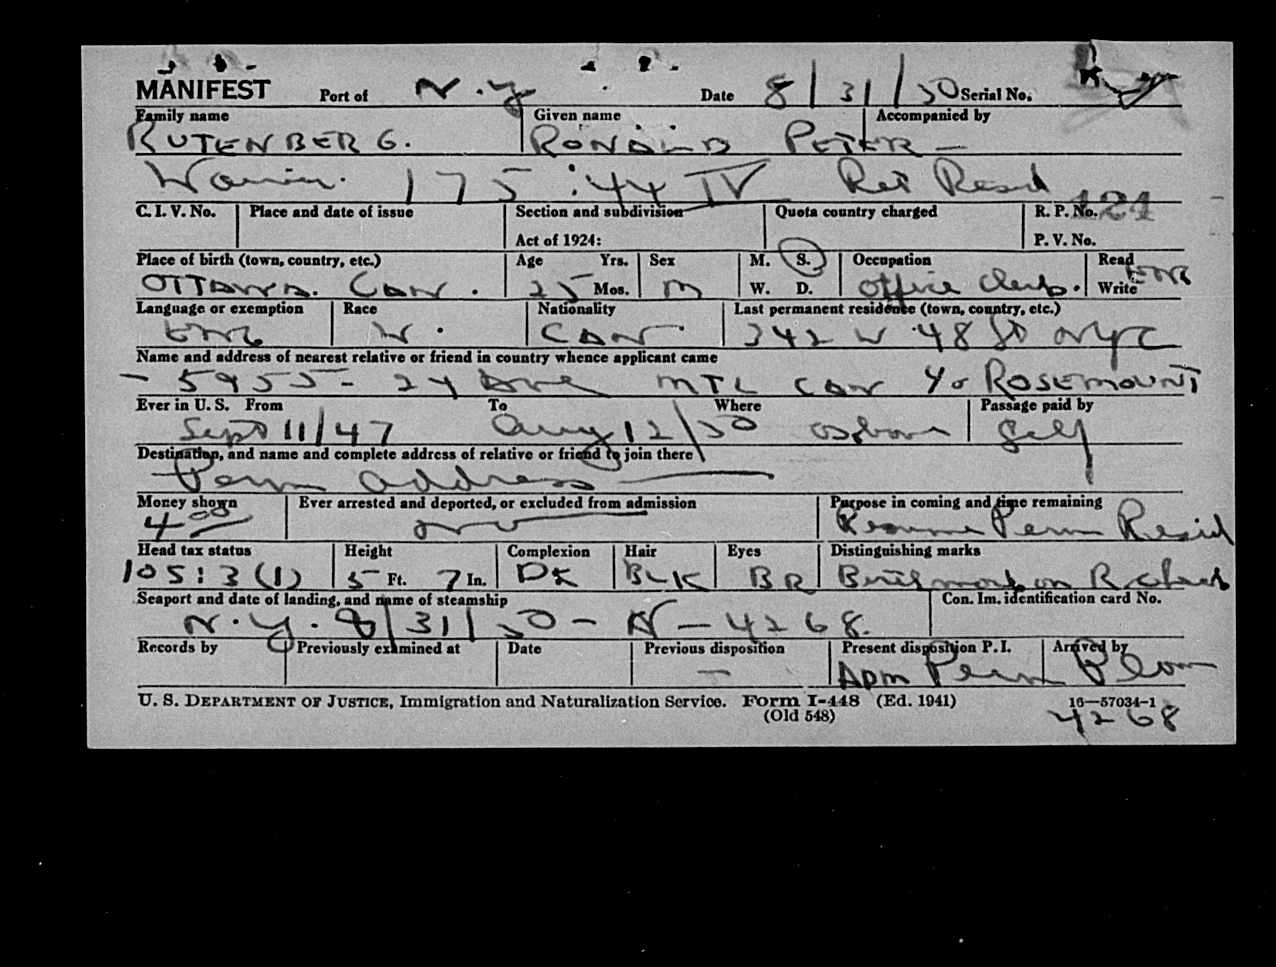 MANIFEST Port of N.Y. Date 8/31/50 Serial No.
Family name Given name Accompanied by
RUTENBERG. RONALD PETER —
175:44 IV Ret Resd
C. I. V. No. Place and date of issue Section and subdivision Quota country charged R. P. No. 424
Act of 1924: P. V. No.
Place of birth (town, country, etc.) Age Yrs. Sex M. S. Occupation Read
OTTAWA. CAN. 25 Mos. M W. D. Office Clerk. Write ENG
Language or exemption Race Nationality Last permanent residence (town, country, etc.)
ENG W. CAN. 342 W 48 St NYC
Name and address of nearest relative or friend in country whence applicant came
- 5955 - 24 Ave MTL CAN ROSEMOUNT
Ever in U. S. From To Where Passage paid by
Sept 11/47 Aug 12/50 Self
Destination, and name and complete address of relative or friend to join there
Perm address —
Money shown Ever arrested and deported, or excluded from admission Purpose in coming and time remaining
4.00 no Resume Perm Resid
Head tax status Height Complexion Hair Eyes Distinguishing marks
105:3(1) 5 Ft. 7 In. DK BLK BR Birthmark on R. cheek
Seaport and date of landing, and name of steamship Con. Im. identification card No.
N.Y. 8/31/50 - N-4268.
Records by Previously examined at Date Previous disposition Present disposition P. I. Arrived by
— ADM Perm Plane
U. S. DEPARTMENT OF JUSTICE, Immigration and Naturalization Service. Form I-448 (Ed. 1941) 16—57034-1
(Old 548) 4268